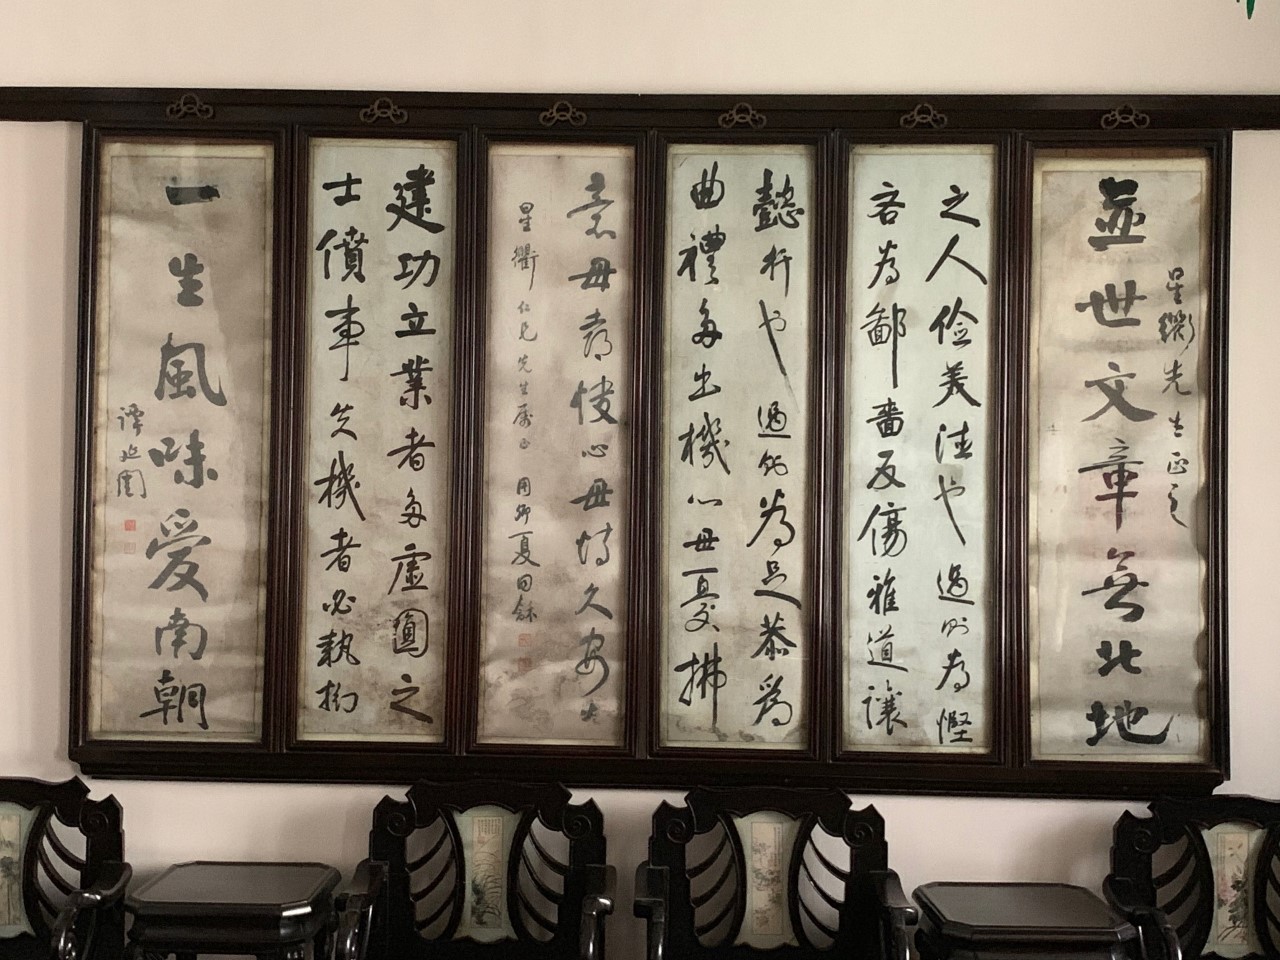 並世文章無北地
星衢先生正之
之人儉美德也過則為慳
吝為鄙嗇反傷雅道讓
懿行也過則為足恭為
曲禮多出機心毋憂拂
意毋喜快心毋恃久安
星衢仁兄先生屬正 用卿夏同龢
建功立業者多虛圓之
士僨事失機者必執拗
一生風味愛南朝
譚延闓